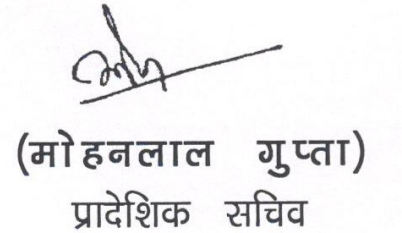 (मोहनलाल गुप्ता)
प्रादेशिक सचिव